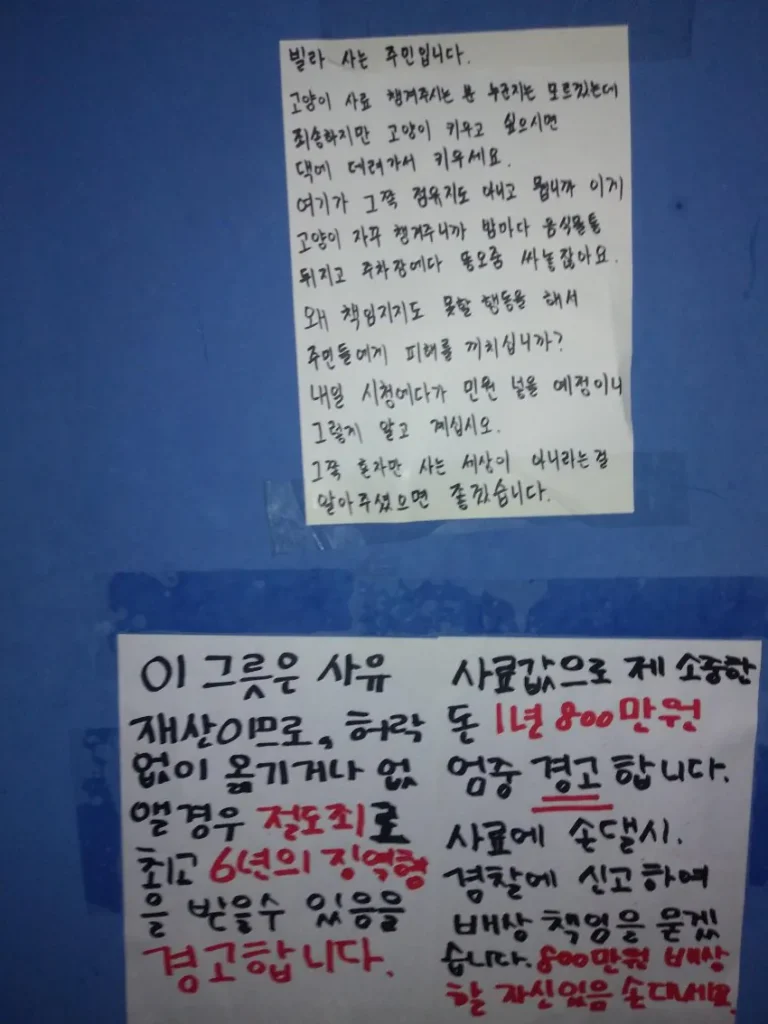 빌라 사는 주민입니다.
고양이 사료 챙겨주시는 분 누군지는 모르겠는데
죄송하지만 고양이 키우고 싶으시면
댁에 데려가서 키우세요.
여기가 그쪽 점유지도 아니고 뭡니까 이게
고양이 자꾸 챙겨주니까 밤마다 음식물통
뒤지고 주차장에다 똥오줌 싸놓잖아요.
왜 책임지지도 못할 행동을 해서
주민들에게 피해를 끼치십니까?
내일 시청에다가 민원 넣을 예정이니
그렇게 알고 계십시오.
그쪽 혼자만 사는 세상이 아니라는걸
알아주셨으면 좋겠습니다.
이 그릇은 사유
재산이므로, 허락
없이 옮기거나 없
앨 경우 절도죄로
최고 6년의 징역형
을 받을수 있음을
경고합니다.
사료값으로 제 소중한
돈 1년 800만원
엄중 경고 합니다.
사료에 손댈시.
경찰에 신고하여
배상 책임을 묻겠
습니다. 800만원 배상
할 자신있음 손대세요.